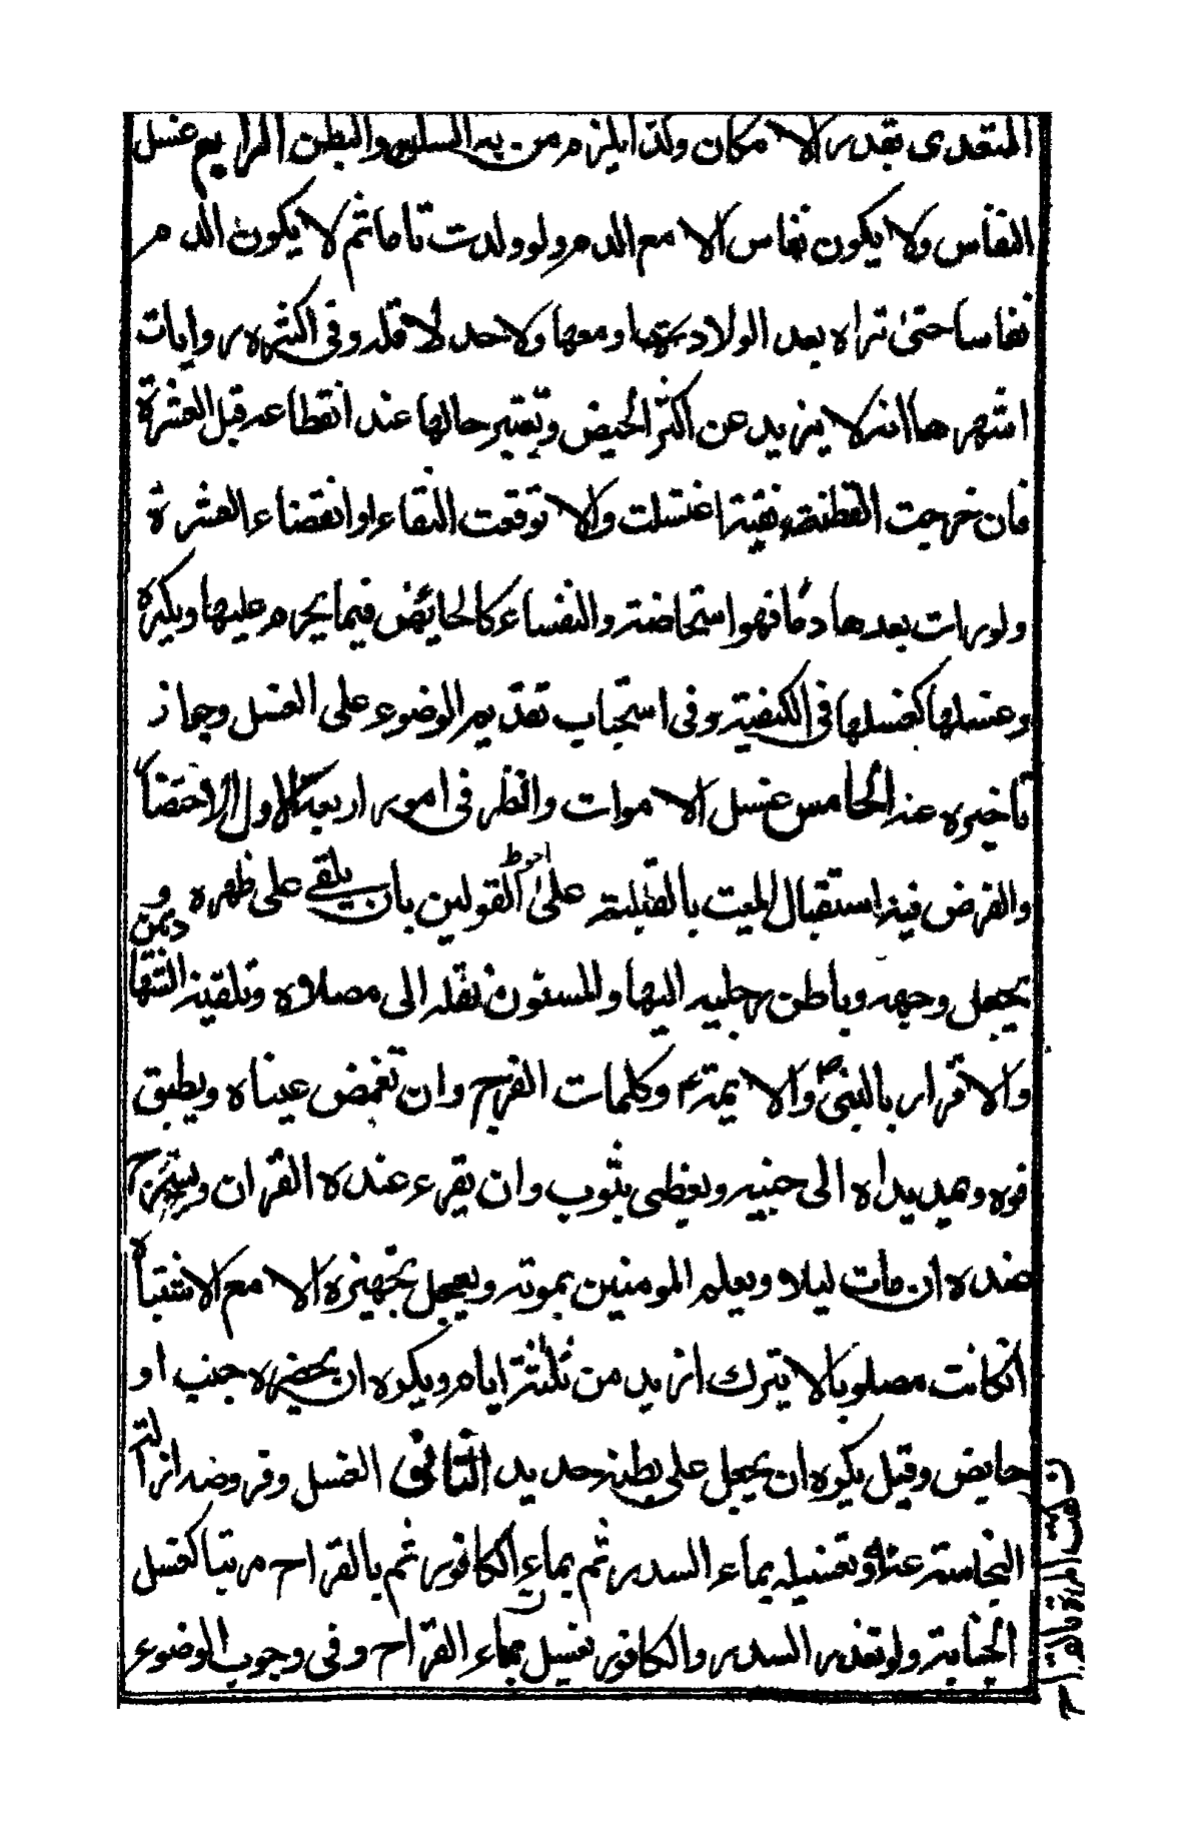 التعدى بقدر الامكان وكذا يلزم من به السلس والبطن الرابع غسل
النفاس ولا يكون نفاس الا مع الدم ولو ولدت تاما ثم لا يكون الدم
نفاسا حتى تراه بعد الولادة او معها ولا حد لاقله وفى اكثره روايات
اشهرها انه لا يزيد عن اكثر الحيض وتعتبر حالها عند انقطاعه قبل العشرة
فان خرجت القطنة نقية اغتسلت والا توقعت النقاء او انقضاء العشرة
ولو رات بعدها دما فهو استحاضة والنفساء كالحائض فيما يحرم عليها ويكره
وغسلها كغسلها فى الكيفية وفى استحباب تقديم الوضوء على الغسل وجواز
تاخيره عنه الخامس غسل الاموات والنظر فى امور اربعة الاول الاحتضا
والفرض فيه استقبال الميت بالقبلة على احوط القولين بان يلقى على ظهره و
يجعل وجهه وباطن رجليه اليها والمسنون نقله الى مصلاه وتلقينه الشهادتين
والاقرار بالنبىؐ والائمةؑ وكلمات الفرج وان تغمض عيناه ويطبق
فوه وتمد يداه الى جنبيه ويغطى بثوب وان يقرء عنده القران ويسرج
عنده ان مات ليلا ويعلم المومنين بموته ويعجل تجهيزه الا مع الاشتباه
انكانت مصلوبا لا يترك ازيد من ثلثة ايام ويكره ان يحضره جنب او
حايض وقيل يكره ان يجعل على بطنه حديد الثانى الغسل وفروضه ازالة
النجاسة عنه وتغسيله بماء السدر ثم بماء الكافور ثم بالقراح مرتبا كغسل
الجنابة ولو تعذر السدر والكافور غسل بماء القراح وفى وجوب الوضوء